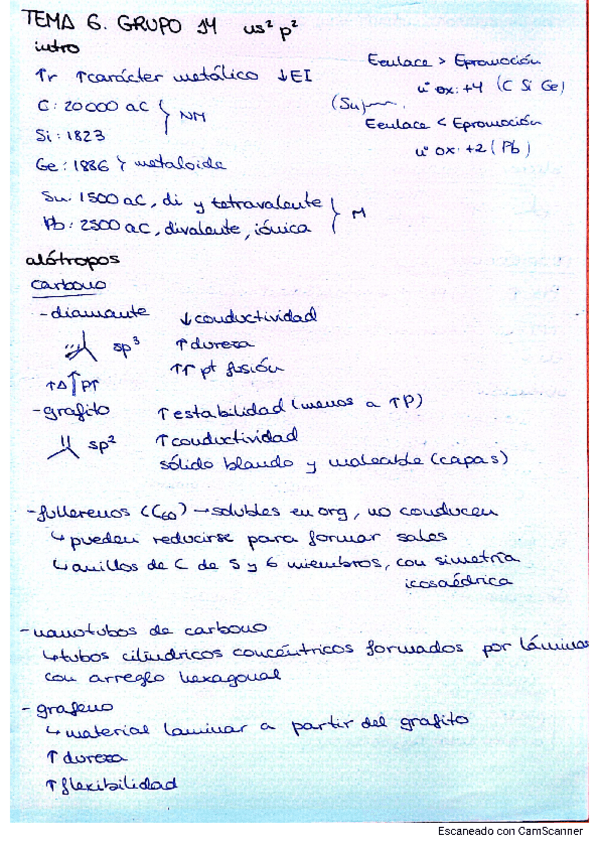 TEMA 6. GRUPO 14 ns² p²
intro
↑r ↑carácter metálico ↓EI
C: 20000 aC } NM
Si: 1823
Ge: 1886 } metaloide
Sn: 1500 aC, di y tetravalente } M
Pb: 2500 aC, divalente, iónica
Eenlace > Epromoción
nº ox: +4 (C Si Ge)
(Sn)
Eenlace < Epromoción
nº ox: +2 (Pb)
alótropos
carbono
-diamante ↓conductividad
sp³ ↑dureza
↑↑ pt fusión
↑Δ ↑ P↑
-grafito ↑estabilidad (menos a ↑P)
sp² ↑conductividad
sólido blando y maleable (capas)
-fullerenos (C₆₀) → solubles en org, no conducen
↳ pueden reducirse para formar sales
↳ anillos de C de 5 y 6 miembros, con simetría
icosaédrica
-nanotubos de carbono
↳ tubos cilíndricos concéntricos formados por láminas
con arreglo hexagonal
- grafeno
↳ material laminar a partir del grafito
↑ dureza
↑ flexibilidad
Escaneado con CamScanner